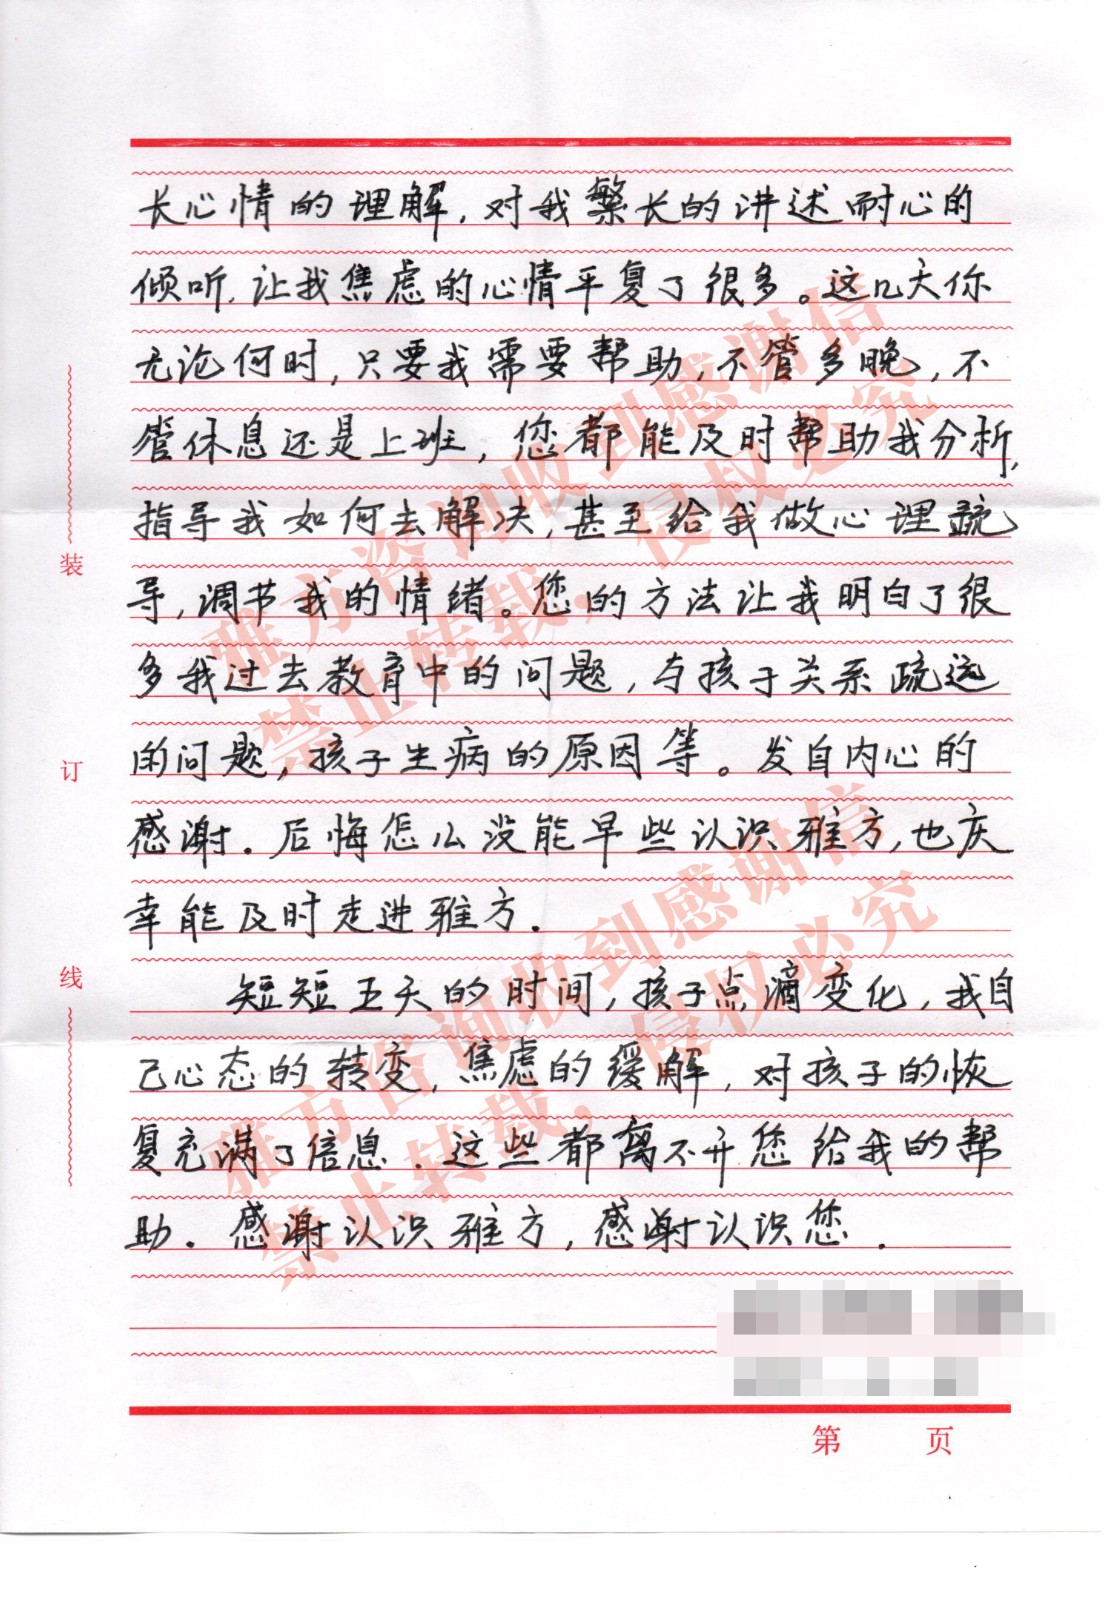 长心情的理解，对我繁长的讲述耐心的
倾听，让我焦虑的心情平复了很多。这几天你
无论何时，只要我需要帮助，不管多晚，不
管休息还是上班，您都能及时帮助我分析，
指导我如何去解决，甚至给我做心理疏
导，调节我的情绪。您的方法让我明白了很
多我过去教育中的问题，与孩子关系疏远
的问题，孩子生病的原因等。发自内心的
感谢．后悔怎么没能早些认识雅方，也庆
幸能及时走进雅方．
短短五天的时间，孩子点滴变化，我自
己心态的转变，焦虑的缓解，对孩子的恢
复充满了信息．这些都离不开您给我的帮
助．感谢认识雅方，感谢认识您．
装
订
线
第 页
雅方咨询收到感谢信
禁止转载，侵权必究
雅方咨询收到感谢信
禁止转载，侵权必究